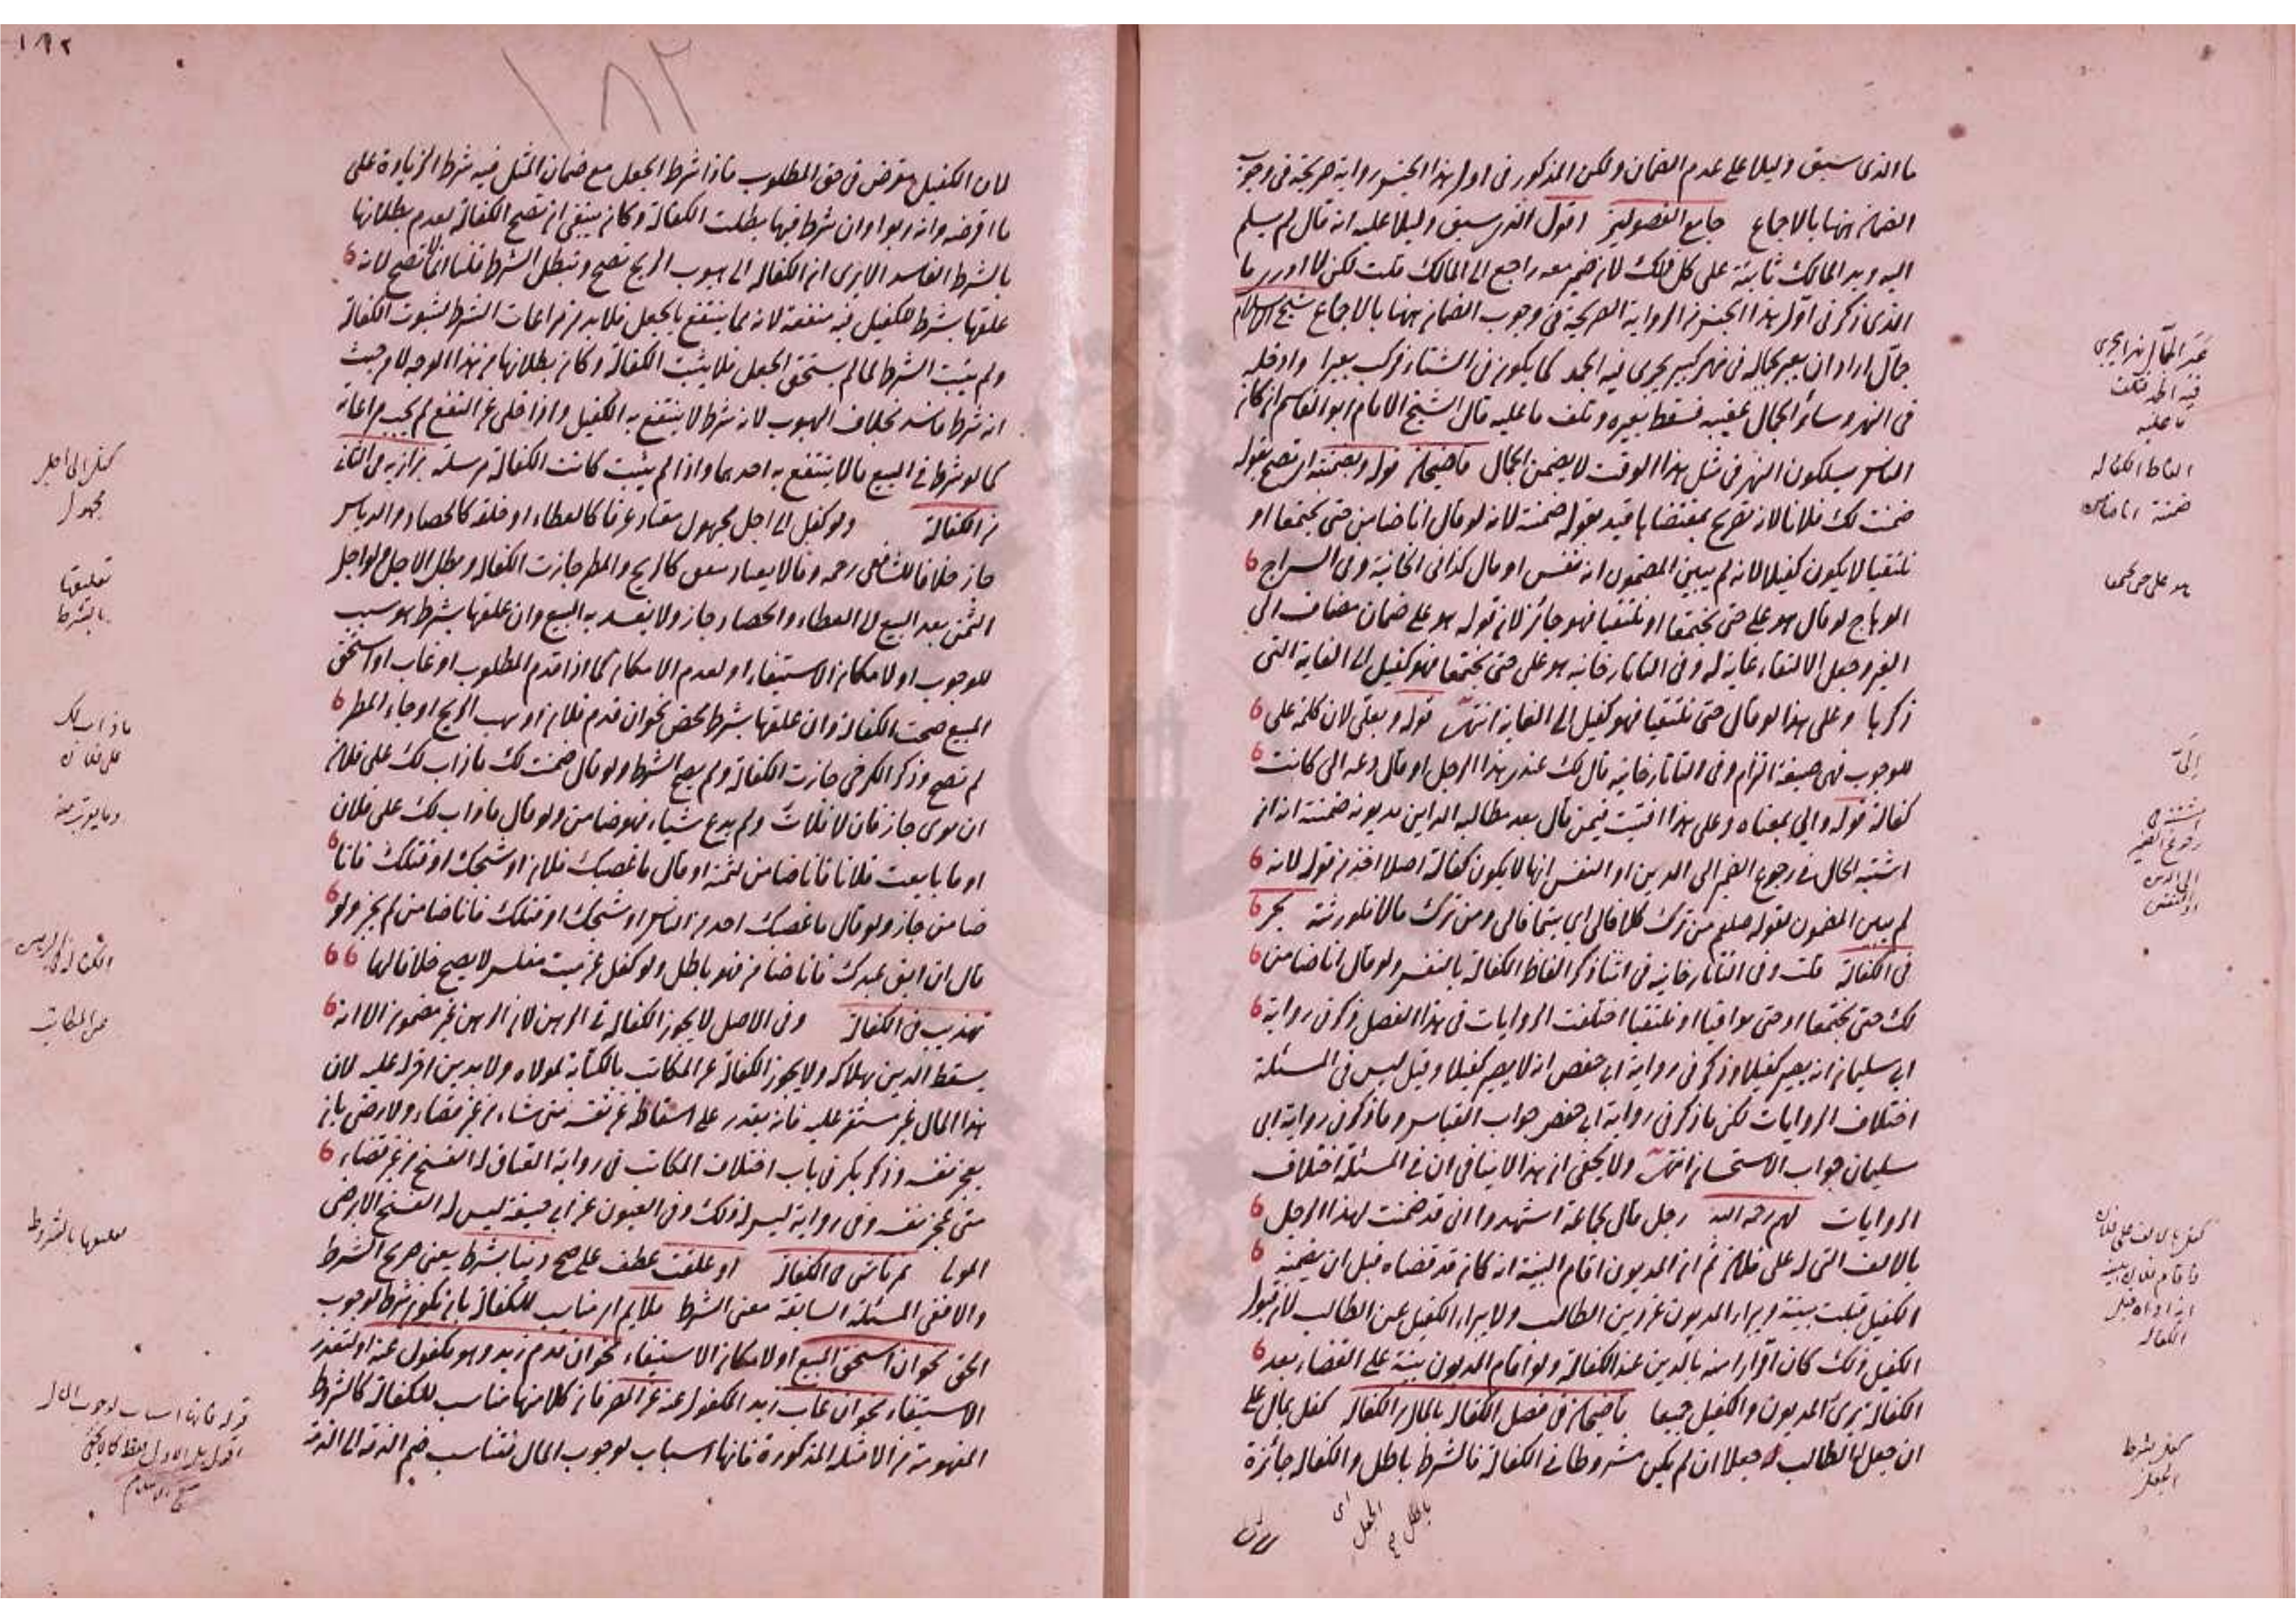 ما الذى سبق دليلا على عدم الضمان ولكن المذكور فى اول هذا الجنس رواية صريحة فى وجوب
الضمان ههنا بالاجماع جامع الفصولين اقول الذى سبق دليلا عليه انه قال لم يسلم
اليه ويد المالك ثابتة على كل ذلك لان ضمير معه راجع الى المالك قلت لكن لا ادرى ما
الذى ذكر فى اول هذا الجنس من الرواية الصريحة فى وجوب الضمان ههنا بالاجماع شيخ الاسلام
جمال اراد ان يعبر بجماله فى نهر كبير يجرى فيه الجمد كما يكون فى الشتاء فركب بعيرا وادخله
فى النهر وسائر الجمال عقيبه فسقط بعيره وتلف ما عليه قال الشيخ الامام ابو القاسم ان كان
الناس يسلكون النهر فى مثل هذا الوقت لا يضمن الجمال قاضيخان قوله وبضمنته اى تصح بقوله
ضمنت لك فلانا لانه تصريح بمقتضاها قيد بقوله ضمنته لانه لو قال انا ضامن حتى تجتمعا او
تلتقيا لا يكون كفيلا لانه لم يبين المضمون انه نفس او مال كذا فى الخانية وفى السراج
الوهاج لو قال هو على حتى تجتمعا او تلتقيا فهو جائز لان قوله هو على ضمان مضاف الى
الغير وجعل الالتقاء غاية له وفى التاتارخانيه هو على حتى تجتمعا فهو كفيل الى الغاية التى
ذكرها وعلى هذا لو قال حتى تلتقيا فهو كفيل الى الغاية انتهى قوله وبعلى لان كلمة على
للوجوب فهى صيغة التزام وفى التاتارخانيه قال لك عندى هذا الرجل او قال دعه الى كانت
كفالة قوله والي بمعناه وعلى هذا افتيت فيمن قال بعد مطالبة الداين مديونه ضمنته انه ان
اشتبه الحال فى رجوع الضمير الى الدين او النفس انها لا يكون كفالة اصلا اخذ من قوله لانه
لم يبين المضمون لقوله صلعم من ترك كلا فالى اى يتيما فالى ومن ترك مالا فلورثته بحر
فى الكفالة قلت وفى التاتارخانيه فى اثنا ذكر الفاظ الكفالة بالنفس ولو قال انا ضامن
لك حتى تجتمعا او حتى يوافيا او تلتقيا اختلفت الروايات فى هذا الفصل ذكر فى رواية
ابى سليمان انه يصير كفيلا وذكر فى رواية ابى حفص انه لا يصير كفيلا وقيل ليس فى المسئلة
اختلاف الروايات لكن ما ذكر فى رواية ابى حفص جواب القياس وما ذكر فى رواية ابى
سليمان جواب الاستحسان انتهى ولا يخفى ان هذا لا ينافى ان فى المسئلة اختلاف
الروايات لهم رحمه الله رجل قال لجماعة اشهدوا انى قد ضمنت لهذا الرجل
بالالف التى له على فلان ثم ان المديون اقام البينة انه كان قد قضاه قبل ان يضمنه
الكفيل قبلت بينته وبراء المديون عن دين الطالب ولا يبراء الكفيل عن الطالب لان قبول
الكفيل ذلك كان اقرارا منه بالدين عند الكفالة ولو اقام المديون بينة على القضاء بعد
الكفالة برئ المديون والكفيل جميعا قاضيخان فى فصل الكفالة بالمال من الكفالة كفل بمال على
ان جعل له الطالب جعلا ان لم يكن مشروطا فى الكفالة فالشرط باطل والكفالة جائزة
اى
الجعل
باطل
لان
عبر الجمال نهرا يجرى
فيه الجمد فتلف
ما عليه
الفاظ الكفالة
ضمنته انا ضامن
هو على حتى تجتمعا
الى
اشتبه فى
رجوع الضمير
الى الدين
او النفس
كفل بالالف على فلان
فاقام فلان البينة
انه اداه قبل
الكفالة
كفل بشرط
الجعل
١٨٢
١٨٢
لان الكفيل مقرض فى حق المطلوب فاذا شرط الجعل مع ضمان المثل فيه شرط الزيادة على
ما اقرضه وانه ربوا وان شرط فيها بطلت الكفالة وكان ينبغى ان تصح الكفالة لعدم بطلانها
بالشرط الفاسد الا يرى ان الكفالة الى هبوب الريح تصح وتبطل الشرط قلنا انما لا تصح لانه
علقها بشرط للكفيل فيه منفعة لانه مما ينتفع بالجعل فلا بد من مراعات الشرط لثبوت الكفالة
ولم يثبت الشرط لما لم يستحق الجعل فلا يثبت الكفالة وكان بطلانها من هذا الوجه لا من حيث
انه شرط فاسد بخلاف الهبوب لانه شرط لا ينتفع به الكفيل واذا خلى عن النفع لم يجب مراعاته
كما لو شرط فى البيع ما لا ينتفع به احدهما واذا لم يثبت كانت الكفالة مرسلة بزازيه فى الثانى
من الكفالة ولو كفل الى اجل مجهول معتاد عرفا كالعطاء او خلقة كالحصاد والدياس
جاز خلافا للشافعى رحمه وما لا يعتاد كالريح والمطر جازت الكفالة وبطل الاجل ولو اجل
الثمن بعد البيع الى العطاء والحصاد جاز ولا يفسد به البيع وان علقها بشرط هو سبب
للوجوب او لامكان الاستيفاء او لعدم الامكان كما اذا قدم المطلوب او غاب او استحق
المبيع صحت الكفالة وان علقها بشرط محض نحو ان قدم فلان او يهب الريح او جاء المطر
لم تصح وذكر الكرخى جازت الكفالة ولم يصح الشرط ولو قال ضمنت لك ما ذاب لك على فلان
ان توى جاز فان لا فلات ولم يدع شياء فهو ضامن ولو قال ما ذاب لك على فلان
او ما بايعت فلانا فانا ضامن لثمنه او قال ما غصبك فلان او شجك او قتلك فانا
ضامن جاز ولو قال ما غصبك احد من الناس او شجك او قتلك فانا ضامن لم يجز ولو
قال ان ابق عبدك فانا ضامن فهو باطل ولو كفل عن ميت مفلس لا يصح خلافا لهما
تهذيب فى الكفالة وفى الاصل لا يجوز الكفالة فى الرهن لان الرهن غير مضمون الا انه
يسقط الدين بهلاكه ولا يجوز الكفالة عن المكاتب بالكتابة لمولاه ولا بدين اقر له عليه لان
هذا المال غير مستقر عليه فانه يقدر على اسقاطه عن نفسه متى شاء من غير قضاء ولا رضى بان
يعجز نفسه وذكر بكر فى باب اختلاف المكاتب فى رواية العتاق له الفسخ من غير قضاء
متى عجز نفسه وفى رواية ليس له ذلك وفى العيون عن ابى حنيفة ليس له الفسخ الا برضى
المولى تمرتاشى فى الكفالة او علقت عطف على صح دينا بشرط يعنى صريح الشرط
والا ففى المسئلة السابقة معنى الشرط ملايم اى مناسب للكفالة بان تكون شرط لوجوب
الحق نحو ان استحق المبيع او لامكان الاستيفاء نحو ان قدم زيد وهو مكفول عنه او لتعذر
الاستيفاء نحو ان غاب زيد المكفول عنه عن المصر فان كلا منها مناسب للكفالة كالشروط
المفهومة من الامثلة المذكورة فانها اسباب لوجوب المال فتناسب ضم الذمة الى الذمة
كفل الى اجل
مجهول
تعليقها
بالشرط
ما ذاب لك
على فلان
الكفالة فى الرهن
عن المكاتب
تعليقها بالشروط
قوله فانها اسباب لوجوب المال
اقول بل الاول فقط كما لا يخفى
شيخ الاسلام